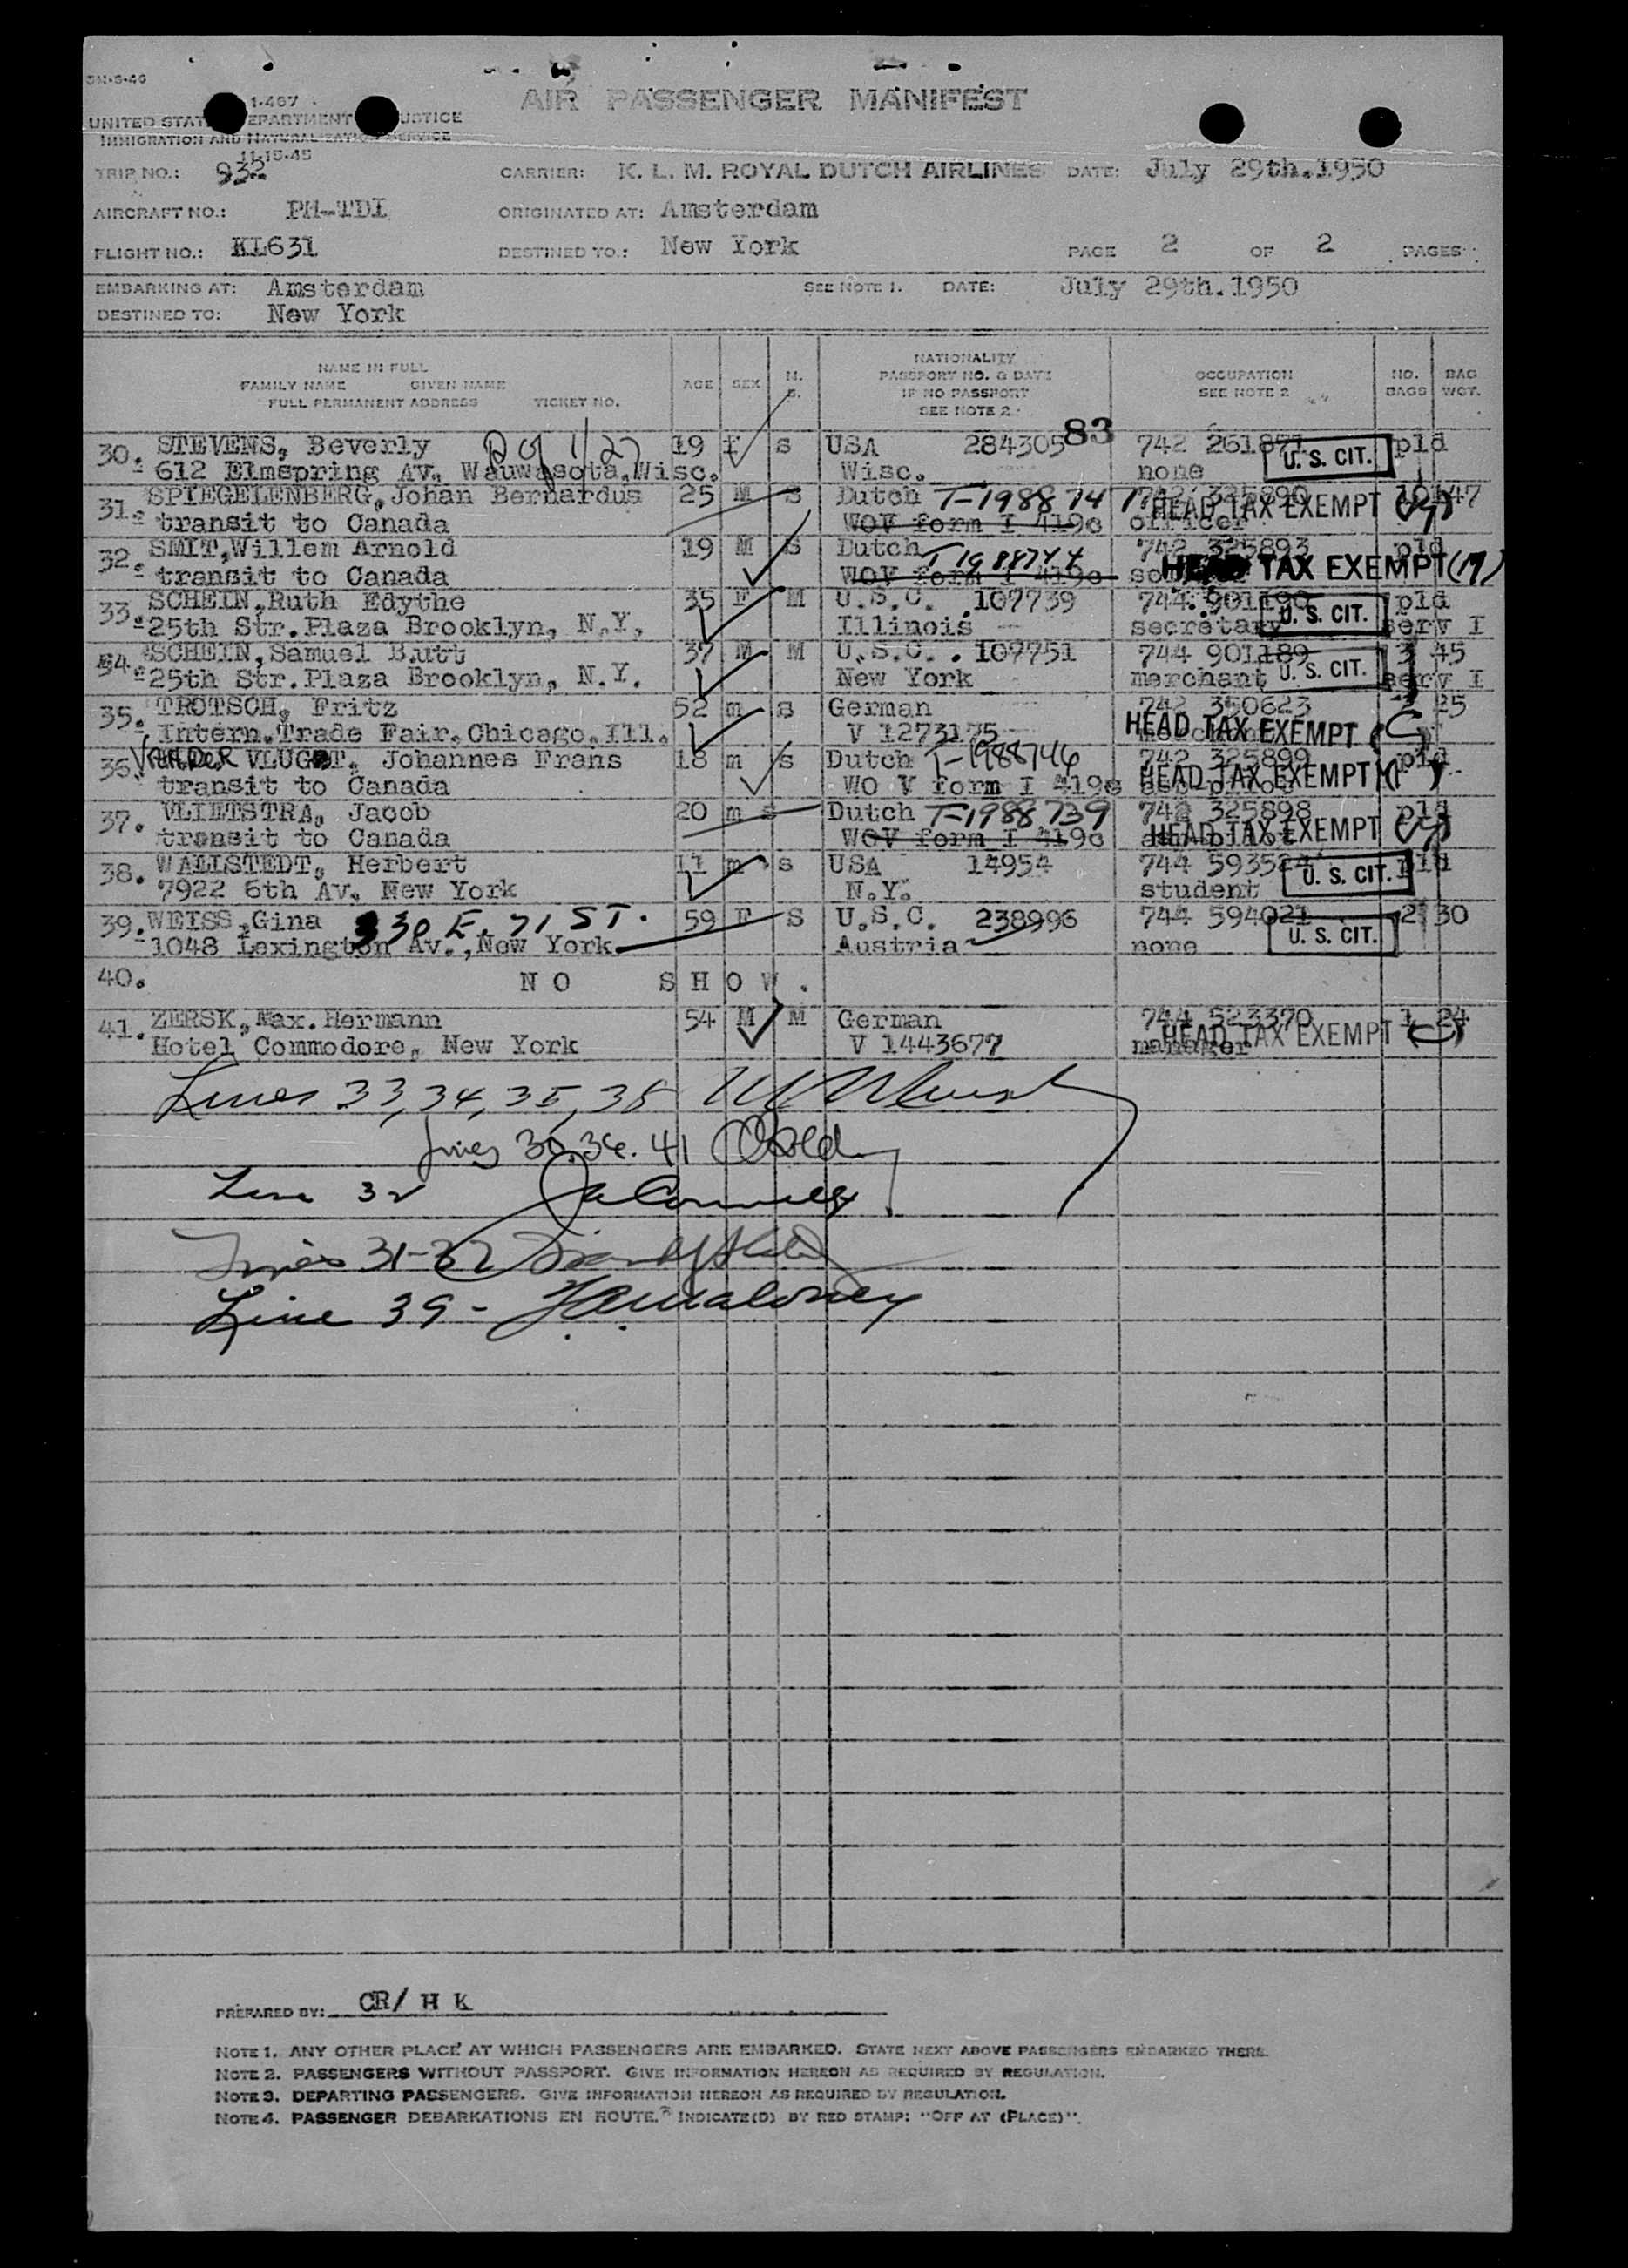 AIR PASSENGER MANIFEST
I-467
UNITED STATES DEPARTMENT JUSTICE
IMMIGRATION AND NATURALIZATION SERVICE
11-15-45
TRIP NO.: 932 CARRIER: K. L. M. ROYAL DUTCH AIRLINES DATE: July 29th.1950
AIRCRAFT NO.: PH-TDI ORIGINATED AT: Amsterdam
FLIGHT NO.: KL631 DESTINED TO.: New York PAGE 2 OF 2 PAGES
EMBARKING AT: Amsterdam SEE NOTE 1. DATE: July 29th.1950
DESTINED TO: New York
NAME IN FULL
FAMILY NAME GIVEN NAME
FULL PERMANENT ADDRESS TICKET NO.
AGE SEX M. S.
NATIONALITY
PASSPORT NO. & DATE
IF NO PASSPORT
SEE NOTE 2
OCCUPATION
SEE NOTE 2
NO. BAGS
BAG WGT.
30. STEVENS, Beverly 19 f s USA 28430583 742 261871 pld
612 Elmspring Av. Wauwasota.Wisc. Wisc. none U. S. CIT.
31. SPIEGELENBERG, Johan Bernardus 25 M S Dutch T-1988741 742 325890
transit to Canada WOV form I 419c officer HEAD TAX EXEMPT
32. SMIT,Willem Arnold 19 M S Dutch T1988744 742 325893 pld
transit to Canada WOV form I 419c HEAD TAX EXEMPT (17)
33. SCHEIN,Ruth Edythe 35 F M U.S.C. 107739 744 901190 pld
25th Str.Plaza Brooklyn, N.Y. Illinois secretary U. S. CIT. serv I
34. SCHEIN,Samuel Butt 37 M M U.S.C. 107751 744 901189 3 45
25th Str.Plaza Brooklyn, N.Y. New York merchant U. S. CIT. serv I
35. TROTSCH, Fritz 52 m s German 742 350623 25
Intern.Trade Fair.Chicago.Ill. V 1273175 HEAD TAX EXEMPT (C)
36. VAN DER VLUGT, Johannes Frans 18 m s Dutch T-1988746 742 325899 pld
transit to Canada WO V form I 419c HEAD TAX EXEMPT
37. VLIETSTRA, Jacob 20 m s Dutch T-1988739 742 325898 pld
transit to Canada WOV form I 419c HEAD TAX EXEMPT
38. WALLSTEDT, Herbert 11 m s USA 14954 744 593524 pld
7922 6th Av. New York N.Y. student U. S. CIT.
39. WEISS,Gina 330 E. 71 ST. 59 F S U.S.C. 238996 744 594021 2 30
1048 Lexington Av.,New York Austria none U. S. CIT.
40. NO SHOW.
41. ZERSK, Max. Hermann 54 M M German 744 523370 1 24
Hotel Commodore, New York V 1443677 manager HEAD TAX EXEMPT (C)
Lines 33, 34, 35, 38
Lines 30. 36. 41
Line 32
Lines 31-37
Line 39 - J.A. Maloney
PREPARED BY: CR/ H K
NOTE 1. ANY OTHER PLACE AT WHICH PASSENGERS ARE EMBARKED. STATE NEXT ABOVE PASSENGERS EMBARKED THERE.
NOTE 2. PASSENGERS WITHOUT PASSPORT. GIVE INFORMATION HEREON AS REQUIRED BY REGULATION.
NOTE 3. DEPARTING PASSENGERS. GIVE INFORMATION HEREON AS REQUIRED BY REGULATION.
NOTE 4. PASSENGER DEBARKATIONS EN ROUTE. INDICATE(D) BY RED STAMP: "OFF AT (PLACE)".